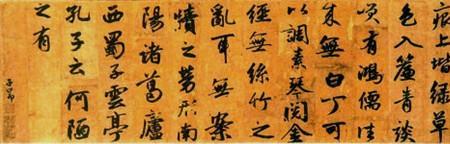 痕上堦緑草
色入簾青談
咲有鴻儒往
来無白丁可
以調素琴閲金
經無絲竹之
亂耳無案
牘之勞形南
陽諸葛廬
西蜀子雲亭
孔子云何陋
之有
子昂